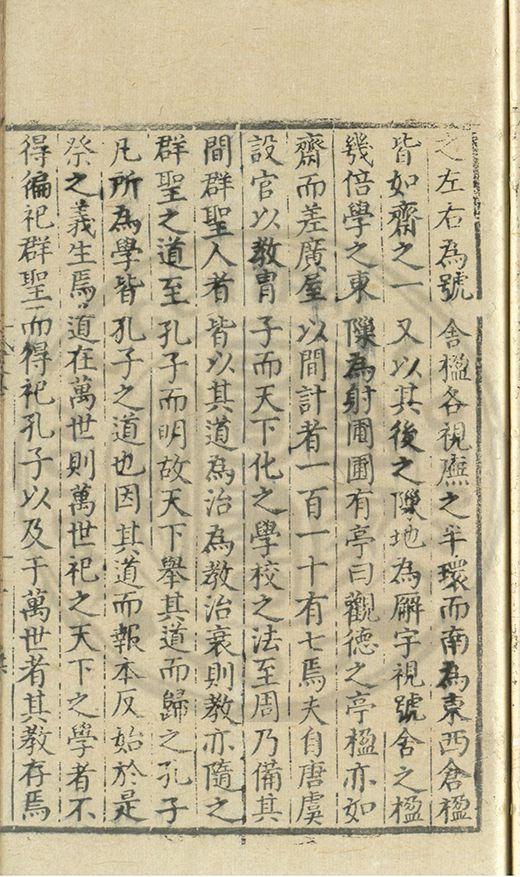 之左右為號舍楹各視廡之半環而南為東西倉楹
皆如齋之一又以其後之隙地為廨宇視號舍之楹
幾倍學之東隙為射圃圃有亭曰觀德之亭楹亦如
齋而差廣屋以間計者一百一十有七焉夫自唐虞
設官以教胄子而天下化之學校之法至周乃備其
間群聖人者皆以其道為治為教治衰則教亦隨之
群聖之道至孔子而明故天下舉其道而歸之孔子
凡所為學皆孔子之道也因其道而報本反始於是
祭之義生焉道在萬世則萬世祀之天下之學者不
得徧祀群聖而得祀孔子以及于萬世者其教存焉